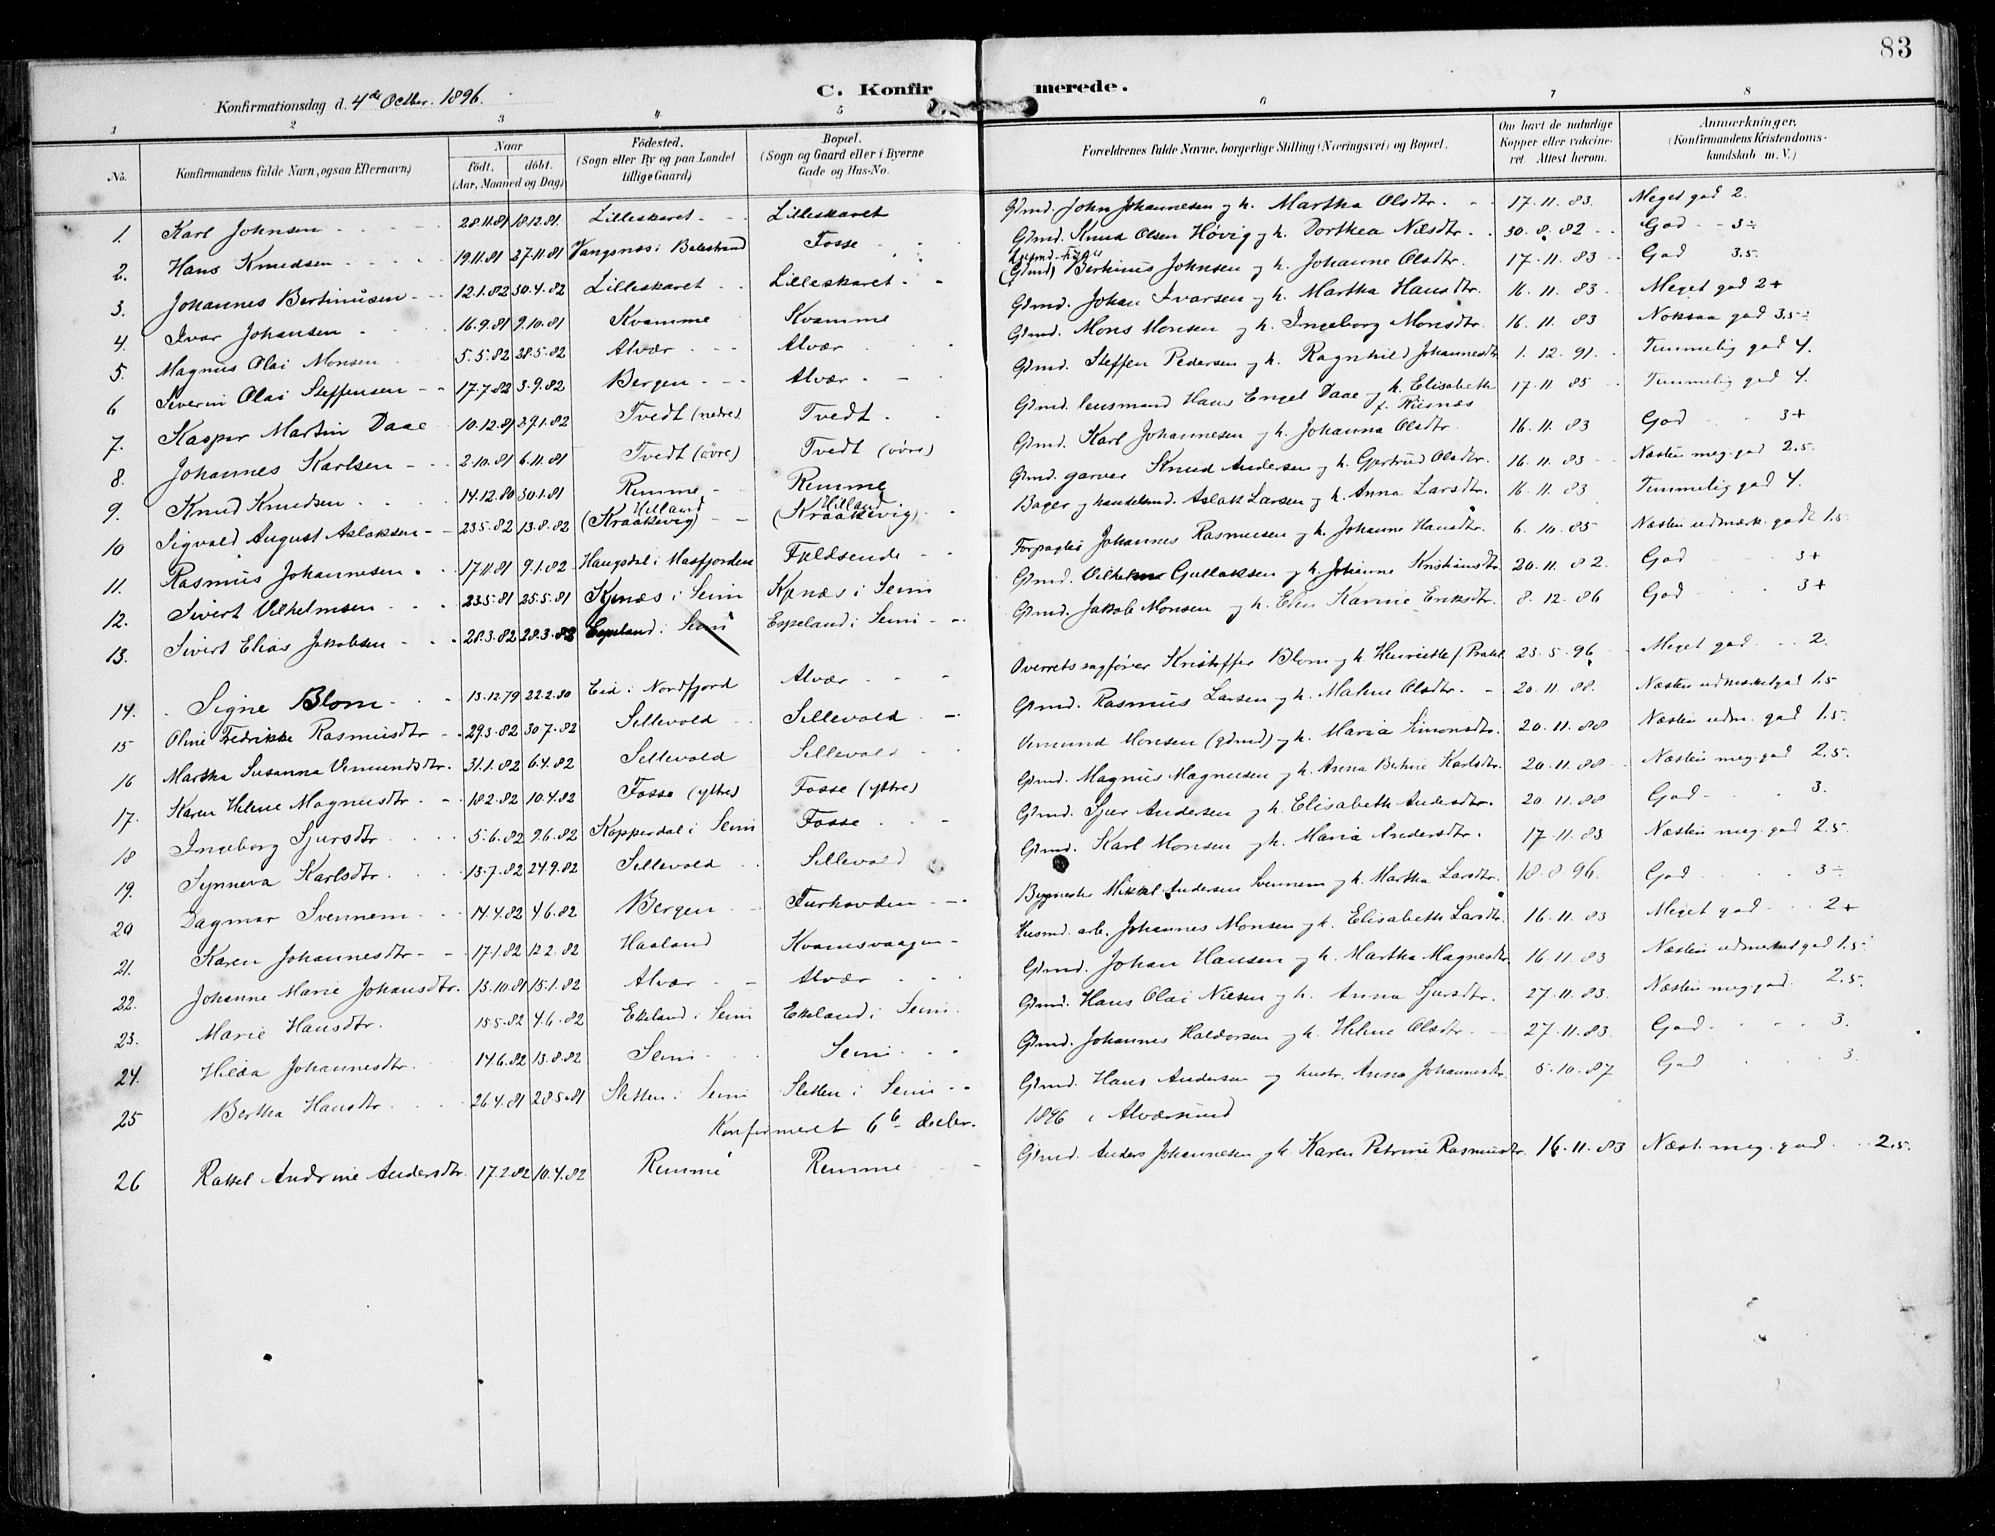 83
Konfirmationsdag d. 4de Octbr. 1896.
C. Konfirmerede.
1 2 3 4 5 6 7 8
No.
Konfirmandens fulde Navn, ogsaa Efternavn)
Naar
födt. döbt.
(Aar, Maaned og Dag)
Födested.
(Sogn eller By og paa Landet
tillige Gaard)
Bopæl.
(Sogn og Gaard eller i Byerne
Gade og Hus-No.
Forældrenes fulde Navne, borgerlige Stilling (Næringsvei) og Bopæl.
Om havt de naturlige
Kopper eller vakcine-
ret. Attest herom.
Anmærkninger.
(Konfirmandens Kristendoms-
kundskab m. V.)
1. Karl Johnsen 28.11.81 18.12.81 Lilleskaret Lilleskaret Gbmd. John Johannesen og h. Martha Olsdtr. 17.11.83. Meget god 2.
2. Hans Knudsen 19.11.81 27.11.81 Vangsnæs i Balestrand Fosse Gbmd. Knud Olsen Hövig og h. Dorthea Nilsdtr. 30.8.82 God 3÷
3. Johannes Bertinusen 12.1.82 30.4.82 Lilleskaret Lilleskaret (Gbmd) Bertinus Johnsen og h. Johanne Olsdtr. 17.11.83 God 3.5.
4. Ivar Johansen 16.9.81 9.10.81 Kvamme Kvamme Gbmd. Johan Ivarsen og h. Martha Hansdtr. 16.11.83. Meget god 2+
5. Magnus Olai Monsen 5.5.82 28.5.82 Alvær Alvær Gbmd. Mons Monsen og h. Ingeborg Monsdtr. 16.11.83 Noksaa god 3.5÷
6 Severin Olai Steffensen 17.7.82 3.9.82 Bergen Alvær Gbmd. Steffen Pedersen og h. Ragnhild Johannesdtr 1.12.91. Temmelig god 4.
7. Kasper Martin Daae 10.12.81 29.1.82 Tvedt (nedre) Tvedt Gbmd. lensmand Hans Engel Daae og h. Elisabeth f. Risnæs 17.11.85 Temmelig god 4.
8. Johannes Karlsen 2.10.81 6.11.81 Tvedt (övre) Tvedt (övre) Gbmd. Karl Johannesen og h. Johanna Olsdtr. 16.11.83 God 3+
9. Knud Knudsen 14.12.80 30.1.81 Remme Remme Gbmd. garver Knud Andersen og h. Gjertrud Olsdtr. 16.11.83 Næsten meg. god 2,5.
10 Sigvald August Aslaksen 23.5.82 13.8.82 Hilland (Kraakevig) Hilland (Kraakevig) Bager og handelsmd. Aslak Larsen og h. Anna Larsdtr. 16.11.83 Temmelig god 4.
11. Rasmus Johannesen 17.11.81 9.1.82 Haugsdal i Masfjorden Fyldsende Forpagter Johannes Rasmussen og h. Johanne Hansdtr. 6.10.85 Næsten udmærk. godt 1.5.
12. Sivert Vilhelmsen 23.5.81 25.5.81 Kjenæs i Seim Kjenæs i Seim Gbmd. Vilhelm Gullaksen og h. Johanne Kristiansdtr 20.11.82. God 3+
13. Sivert Elias Jakobsen 28.3.82 28.3.82 Espeland i Seim Espeland i Seim Gbmd. Jakob Monsen og h. Elen Karine Eriksdtr. 8.12.86 God 3+
14. Signe Blom 13.12.79 22.2.80 Eid i Nordfjord Alvær Overretssagförer Kristoffer Blom og h. Henriette f Prahl 23.5.96 Meget god 2.
15 Oline Fredrikke Rasmusdtr 29.3.82 30.7.82 Sellevold Sellevold Gbmd. Rasmus Larsen og h. Malene Olsdtr. 20.11.88. Næsten udmærket god 1.5
16 Martha Susanna Vemundsdtr. 31.1.82 6.4.82 Sellevold Sellevold Vemund Monsen (gbmd) og h. Maria Simonsdtr. 20.11.88 Næsten udm. god 1.5.
17. Karen Helene Magnusdtr 18.2.82 10.4.82 Fosse (ytre) Fosse (ytre) Gbmd. Magnus Magnusen og h. Anna Bertine Karlsdtr. 20.11.88 Næsten meg. god 2.5.
18 Ingeborg Sjursdtr 5.6.82 9.6.82 Kopperdal i Seim Fosse Gbmd. Sjur Andersen og h. Elisabeth Andersdtr. 20.11.88 God 3.
19. Synneva Karlsdtr. 13.7.82 24.9.82 Sellevold Sellevold Gbmd. Karl Monsen og h. Maria Andersdtr. 17.11.83 Næsten meg. god 2.5.
20 Dagmar Svennem 14.4.82 4.6.82 Bergen Furhovden Bygmester Mikkel Andersen Svennem og h. Martha Larsdtr. 18.8.96. God 3÷
21. Karen Johannesdtr 17.1.82 12.2.82 Haaland Kvamsvaagen Husmd. arb. Johannes Monsen og h. Elisabeth Larsdtr. 16.11.83 Meget god 2+
22. Johanne Marie Johansdtr. 13.10.81 15.1.82 Alvær Alvær Gbmd. Johan Hansen og h. Martha Magnesdtr. 16.11.83 Næsten udmærket god 1.5.
23. Marie Hansdtr. 15.5.82 4.6.82 Ekeland i Seim Ekeland i Seim. Gbmd. Hans Olai Nilsen og h. Anna Sjursdtr. 27.11.83. Næsten meg. god. 2.5.
24. Hilda Johannesdtr. 14.6.82 13.8.82 Seim Seim Gbmd. Johannes Haldorsen og h. Helene Olsdtr. 27.11.83. God. 3.
25 Bertha Hansdtr. 26.4.81 28.5.81 Sletten i Seim Sletten i Seim Gbmd. Hans Andersen og hustr. Anna Johannesdtr 5.10.87 God 3.
Konfirmeret 6te decbr. 1896 i Alværsund
26 Rakel Andrine Andersdtr. 17.2.82 10.4.82 Remme Remme Gbmd. Anders Johannesen og h. Karen Petrine Rasmusdtr. 16.11.83 Næst. meg. god 2.5.